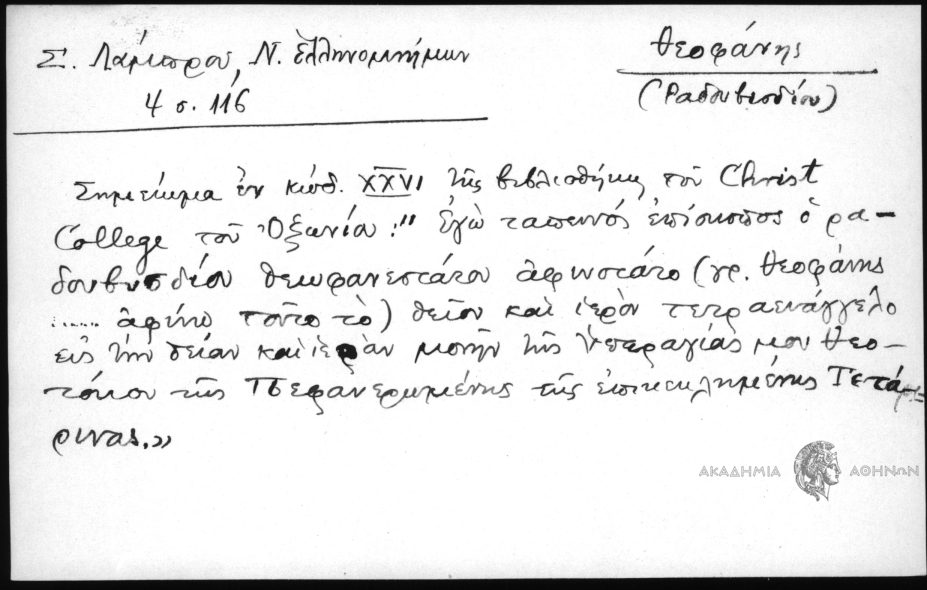 Σ. Λάμπρου, Ν. Ἑλληνομνήμων
4 σ. 116
Θεοφάνης
(Ραδοβισδίου)
Σημείωμα ἐν κώδ. XXVI τῆς βιβλιοθήκης τοῦ Christ
College τοῦ Ὀξωνία: "Ἐγὼ ταπεινός ἐπίσκοπος ὁ ρα-
δουβυσδίου θεωφανεστάτου ἀφινστάτο (γρ. Θεοφάνης
..... ἀφίνω τοῦτο τὸ) θεῖον καὶ ἱερὸν τετραευάγγελο
εἰς τὴν θείαν καὶ ἱερὰν μονὴν τῆς Ὑπεραγίας μου Θεο-
τόκου τῆς Πεφανερωμένης τῆς ἐπικεκλημένης Τετάρ-
ρινας.»
ΑΚΑΔΗΜΙΑ ΑΘΗΝΩΝ